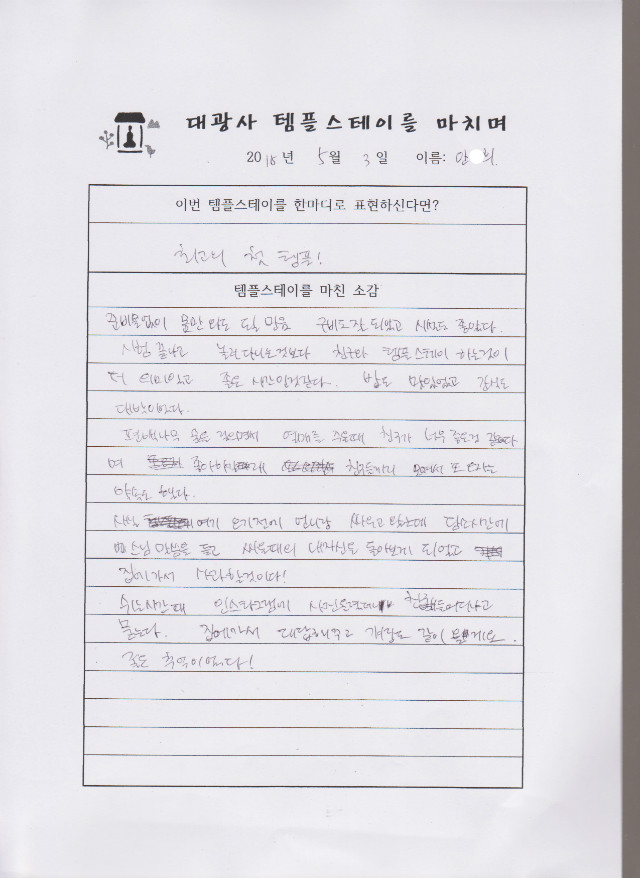 대광사 템플스테이를 마치며
2018년 5월 3일 이름: 안 희
이번 템플스테이를 한마디로 표현하신다면?
최고의 첫 템플!
템플스테이를 마친 소감
준비물없이 몸만 와도 될 만큼 구비도 잘 되있고 시설도 좋았다.
시험 끝나고 놀러다니는것보다 친구와 템플스테이 하는것이
더 의미있고 좋은 시간인것같다. 밥도 맛있었고 간식도
대박이었다.
편백나무 숲을 걸으면서 열매를 주울때 친구가 너무 좋은것 같다
며 좋아하길래 친구들끼리 또 오자는
약속도 했다.
사실 여기 오기전에 언니랑 싸우고 왔는데 담소시간에
스님 말씀을 듣고 싸울때의 내자신을 돌아보게 되었고
집에가서 사과할것이다!
쉬는시간때 인스타그램에 사진올렸더니 친구들이 어디냐고
물는다. 집에가서 대답해주고 겨울도 같이 올게요.
좋은 추억이었다!